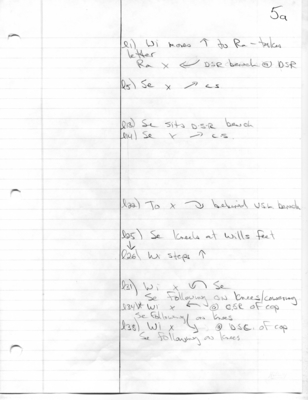 5a
1) Wi moves ↑ to Ra - takes
letter
Ra x ← DSR bench @ DSR
5) Se x ↗ cs
13) Se sits DSR bench
14) Se x ↗ cs
22) To x behind USR bench
25) Se kneels at Wills feet
26) Wi steps ↑
31) Wi x Se
Se following on knees/cowering
Wi x ← @ DSR of cop
Se following on knees
Wi x @ DSL of cop
Se following on knees